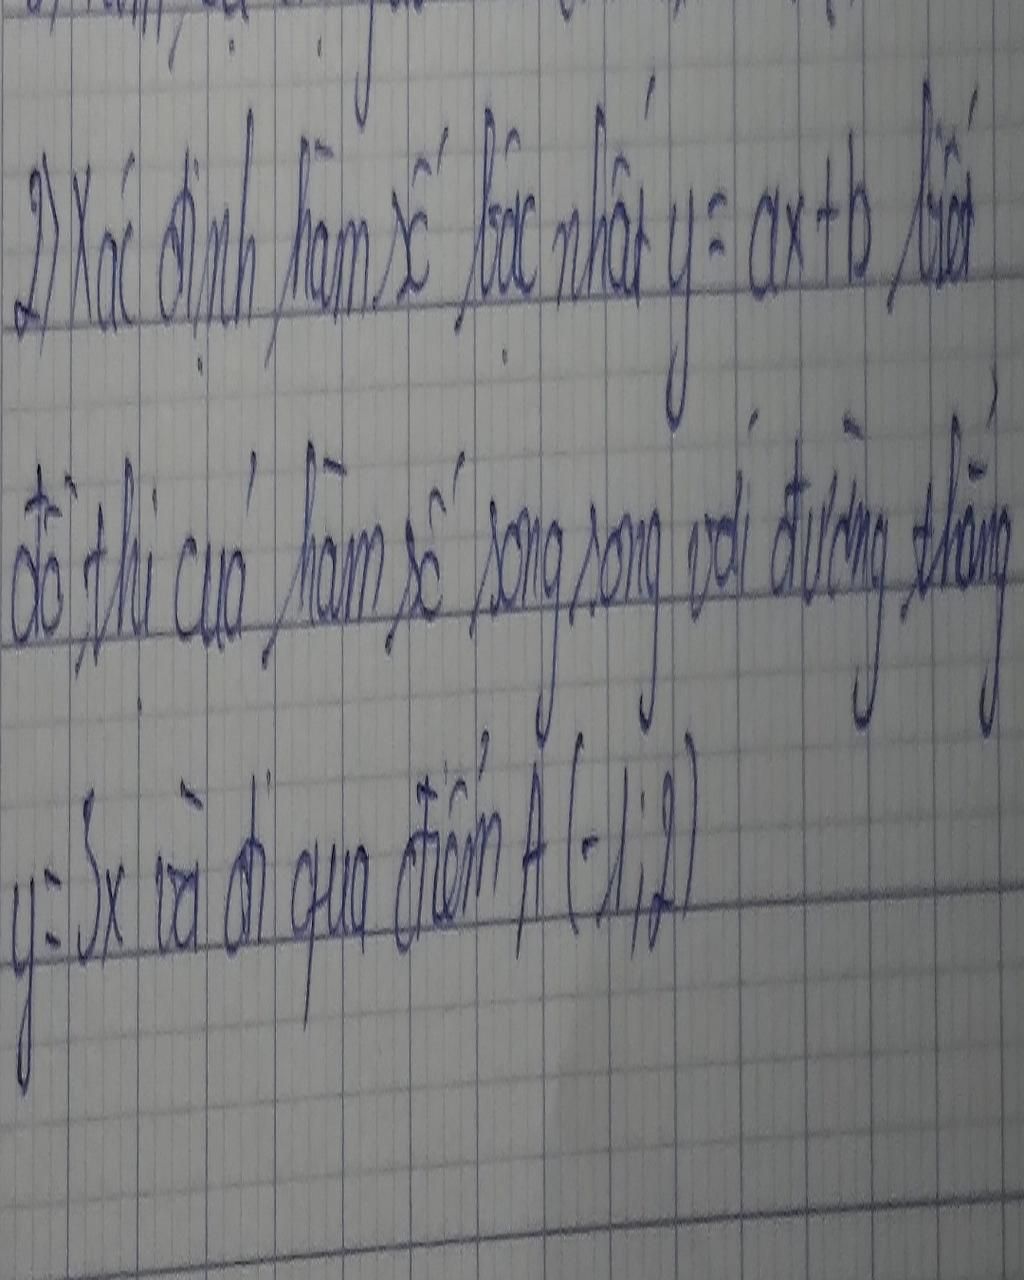 2) Xác định hàm số bậc nhất y = ax + b biết
đồ thị của hàm số song song với đường thẳng
y = 3x và đi qua điểm A (-1; 2)